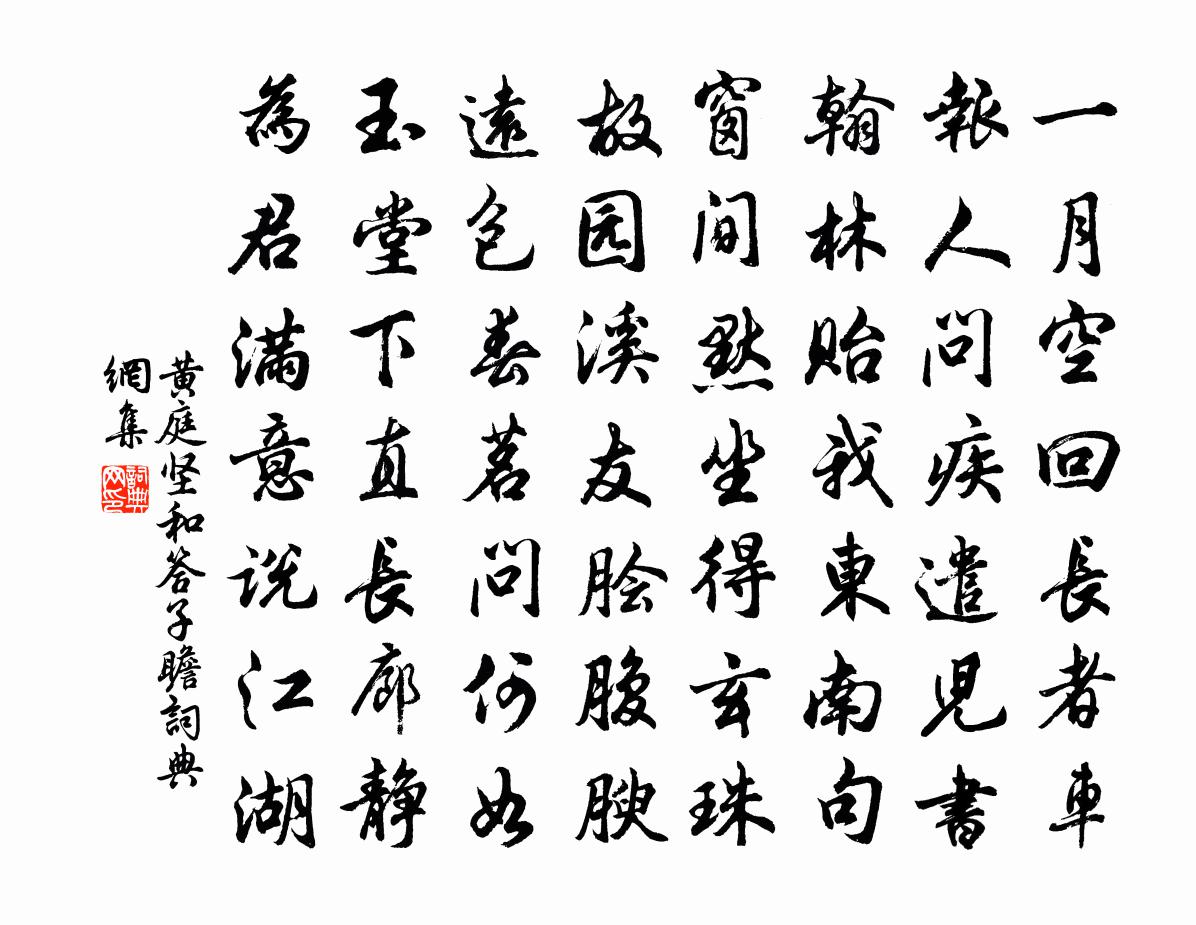 一月空回長者車
報人問疾遣兒書
翰林貽我東南句
窗間默坐得玄珠
故园溪友膾腹腴
遠包春茗問何如
玉堂下直長廊静
為君滿意説江湖
黄庭坚和答子瞻詞典
網集
詞典
网印